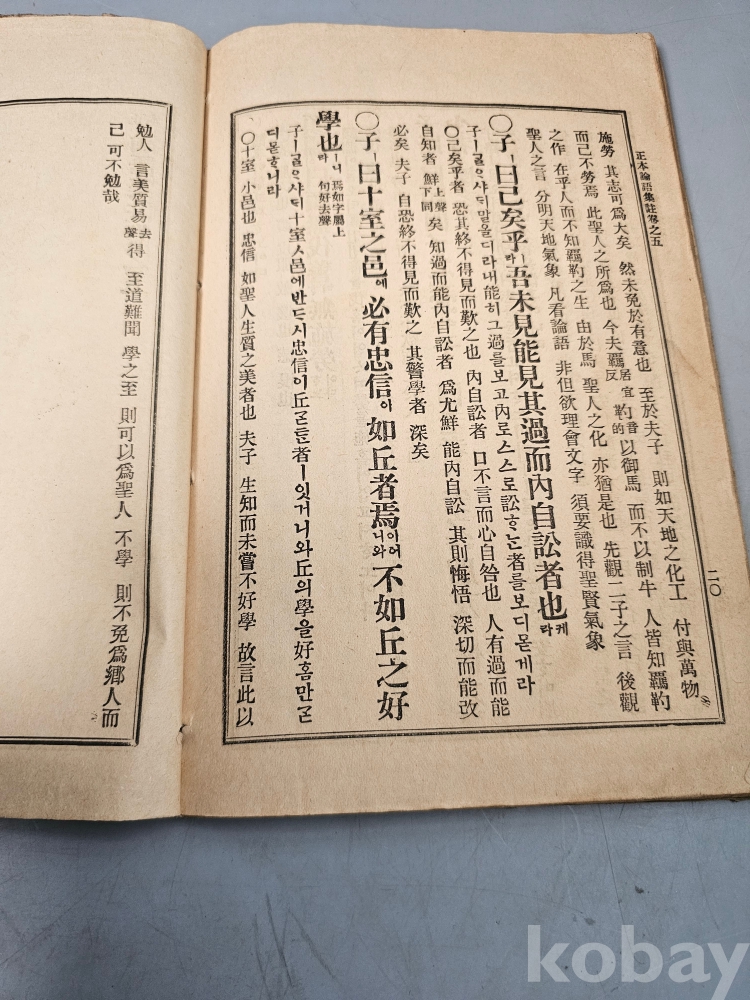 正本論語集註卷之五
二〇
施勞 其志可爲大矣 然未免於有意也 至於夫子 則如天地之化工 付與萬物
而己不勞焉 此聖人之所爲也 今夫羈居宜反靮音的以御馬 而不以制牛 人皆知羈靮
之作 在乎人而不知羈靮之生 由於馬 聖人之化 亦猶是也 先觀二子之言 後觀
聖人之言 分明天地氣象 凡看論語 非但欲理會文字 須要識得聖賢氣象
〇子ㅣ曰已矣乎ㅣ라吾未見能見其過而內自訟者也케라
子ㅣᄀᆞᆯᄋᆞ샤ᄃᆡ말올디라내能히그過를보고內로스스로訟ᄒᆞᄂᆞᆫ者를보디몯게라
〇已矣乎者 恐其終不得見而歎之也 內自訟者 口不言而心自咎也 人有過而能
自知者 鮮上聲下同矣 知過而能內自訟者 爲尤鮮 能內自訟 其則悔悟 深切而能改
必矣 夫子 自恐終不得見而歎之 其警學者 深矣
〇子ㅣ曰十室之邑에必有忠信이如丘者焉이어니와不如丘之好
學也ㅣ니라焉如字屬上句好去聲
子ㅣᄀᆞᆯᄋᆞ샤ᄃᆡ十室ㅅ邑에반ᄃᆞ시忠信이丘ᄀᆞᄐᆞᆫ者ㅣ잇거니와丘의學을好홈만ᄀᆞᆮ
디몯ᄒᆞ니라
〇十室 小邑也 忠信 如聖人生質之美者也 夫子 生知而未嘗不好學 故言此以
勉人 言美質易去聲得 至道難聞 學之至 則可以爲聖人 不學 則不免爲鄕人而
己 可不勉哉
kobay